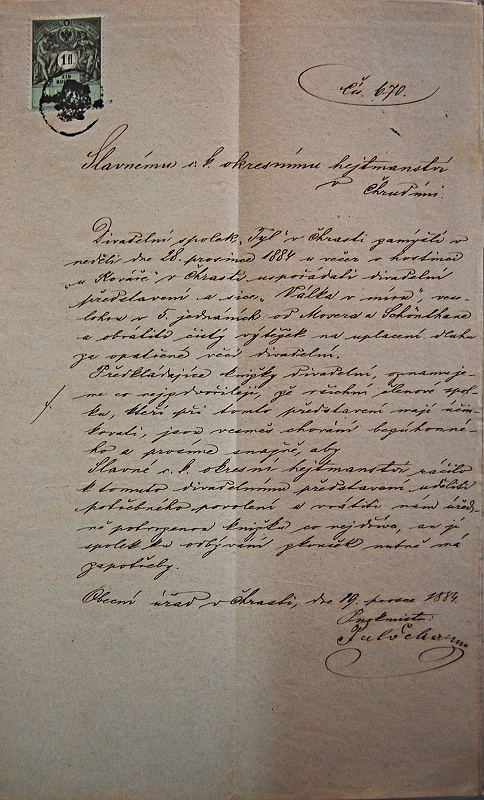 1 fl
EIN
Čís. 670.
Slavnému c. k. okresnímu hejtmanství
v Chrudími.
Divadelní spolek „Tyl" v Chrasti zamýšlí v
neděli dne 28. prosince 1884 u večer v hostinci
„u Kováře" v Chrasti uspořádati divadelní
představení a sice „Válka v míru", vese-
lohra v 5. jednáních od Mosera a Schönthana
a obrátiti čistý výtěžek na uplacení dluhu
za opatřené věci divadelní.
Předkládajíce knížky divadelní, oznamuje-
me co nejzdvořileji, že všichni členové spol-
ku, kteří při tomto představení mají účin-
kovati, jsou vesměs chování bezúhonné-
ho a prosíme snažně, aby
Slavné c. k. okresní hejtmanství ráčilo
k tomuto divadelnímu představení uděliti
potřebného povolení a vrátiti nám úřed-
ně potvrzenou knížku co nejdříve, an jí
spolek ku odbývání zkoušek nutně má
zapotřebí.
Obecní úřad v Chrasti, dne 19. prosce 1884.
Purkmistr: